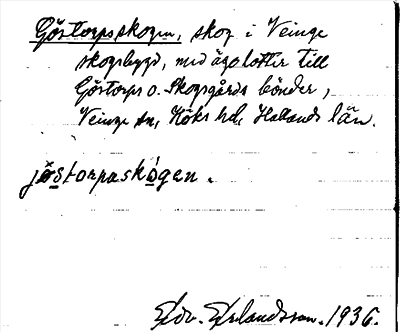 Göstorpsskogen, skog i Veinge
skogsbygd, med ägolotter till
Göstorps o. Skogsgårds bönder,
Veinge sn, Höks hd, Hallands län.
jöstorpaskogen.
Edv. Erlandsson. 1936.